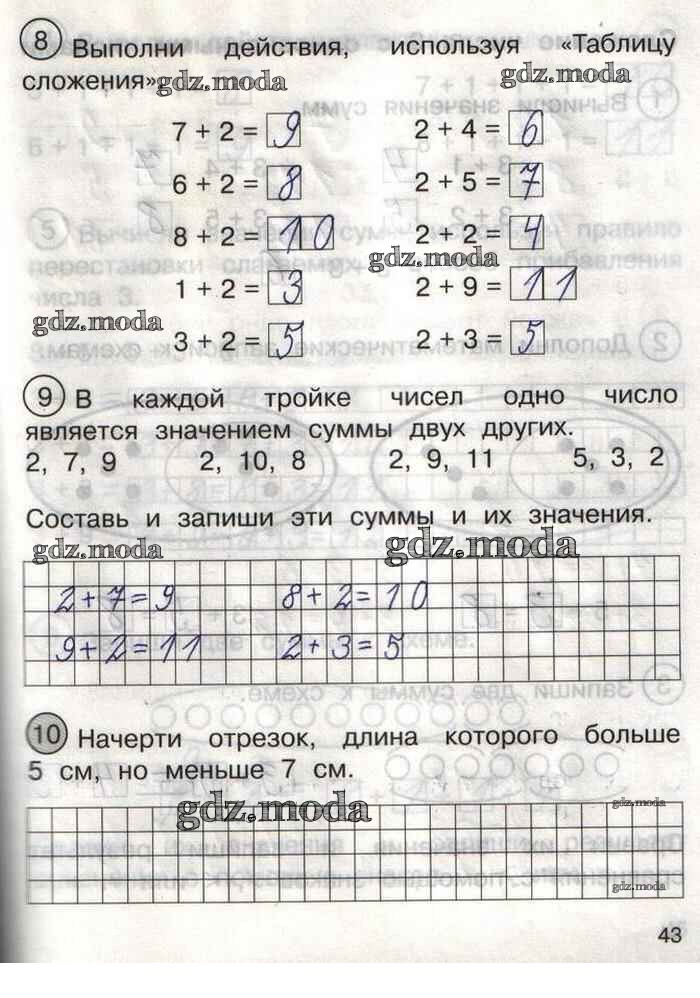 8 Выполни действия, используя «Таблицу
сложения».
gdz.moda gdz.moda
7 + 2 = 9 2 + 4 = 6
6 + 2 = 8 2 + 5 = 7
8 + 2 = 10 2 + 2 = 4
gdz.moda
1 + 2 = 3 2 + 9 = 11
gdz.moda
3 + 2 = 5 2 + 3 = 5
9 В каждой тройке чисел одно число
является значением суммы двух других.
2, 7, 9 2, 10, 8 2, 9, 11 5, 3, 2
Составь и запиши эти суммы и их значения.
gdz.moda gdz.moda
2+7=9 8+2=10
gdz.moda
9+2=11 2+3=5
10 Начерти отрезок, длина которого больше
5 см, но меньше 7 см.
gdz.moda gdz.moda
gdz.moda
43